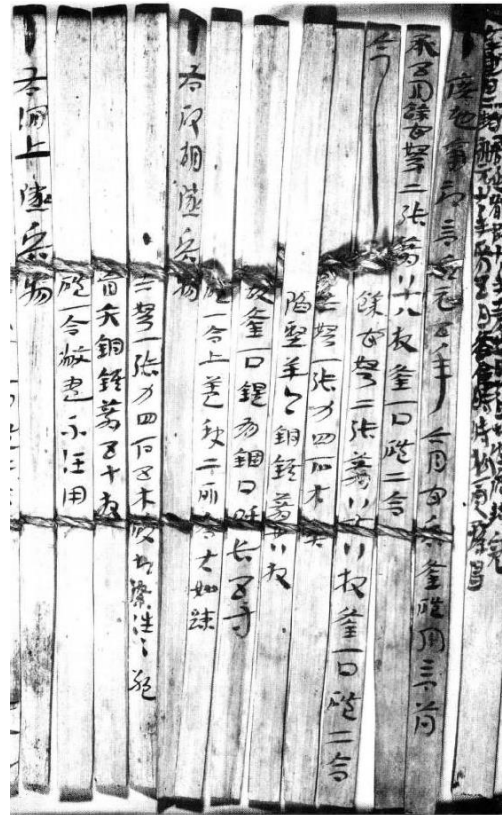 廣地南部言永元五年六月官兵釜磑月言簿
承五月餘官弩二張箭八十八枚釜一口磑二合
今餘官弩二張箭八十八枚釜一口磑二合
赤弩一張力四石木關
陷堅羊頭銅鍭箭卅八枚
故釜一口鍉有錮口呼長五寸
磑一合上蓋缺二所各大如疎
右破胡隧兵物
赤弩一張力四石五木破起繳往往絕
盲矢銅鍭箭五十枚
磑一合敝盡不任用
右澗上隧兵物